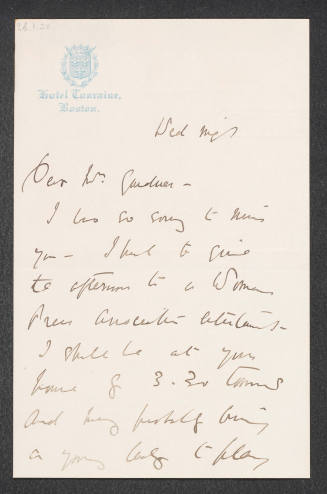 Hotel Touraine,
Boston.
Wed night
Dear Mrs. Gardner -
I was so sorry to miss
you - I had to give
the afternoon to a Womans
Press Association entertainment -
I shall be at your
house by 3.30 tomorrow
and may probably bring
a young lady to play